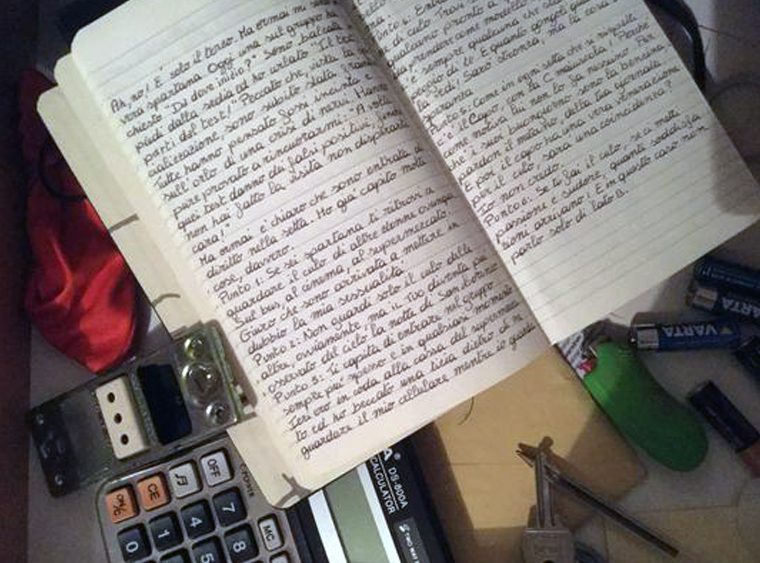 Ah, no! È solo il terzo. Ma ormai mi se
vera spartana. Oggi una sul gruppo ha
chiesto "Da dove inizio?" Sono balzata in
piedi dalla sedia ed ho urlato "Il tes
parti dal test!" Peccato che, vista la
realizzazione, sono subito stata
Tutte hanno pensato fossi incinta o
sull'orlo di una crisi di nervi. Hanno
pure provato a rincuorarmi: "A volte
quei test danno dei falsi positivi. Se
non hai fatto la visita non disperare,
cara!"
Ma ormai è chiaro che sono entrata di
diritto nella setta. Ho già capito molte
cose, davvero.
Punto 1: Se sei spartana ti ritrovi a
guardare il culo di altre donne ovunque
Sul bus, al cinema, al supermercato.
Giuro che sono arrivata a mettere in
dubbio la mia sessualità.
Punto 2: Non guardi solo il culo delle
altre, ovviamente, ma il tuo diventa più
osservato del cielo la notte di San Lorenzo
Punto 3: Ti capita di entrare nel gruppo
sempre più spesso e in qualsiasi momento
Ieri ero in coda alla cassa del supermerca
to ed ho beccato una tizia dietro di me
guardare il mio cellulare mentre io guarda
Punto 4: Entra
di culo. Trovi
saranno pronte a
prendere come modello
è sempre qualcuna che sta
meglio di te. E quanto gongoli quando
la vedi! Sarò stronza, ma la cosa
garanta.
Punto 5: Come in ogni setta che si rispetti
c'è il Capo, con la C maiuscola! Perché
come motiva lui non lo fa nessuno. Per
che i suoi buongiorno sono la benzina
per il motore della tua giornata.
E poi il capo ha una vera venerazione
per il culo, sarà una coincidenza?
Io non credo.
Punto 6: Se fai il culo, se ci metti
passione e sudore, quante soddisfa
zioni arrivano! E in questo caso non
parlo solo di lato B.
VARTA
VARTA
DS-800A
CALCULATOR
TWO WAY
ON/C
CE
OFF
MC
0
1
4
7
5
8